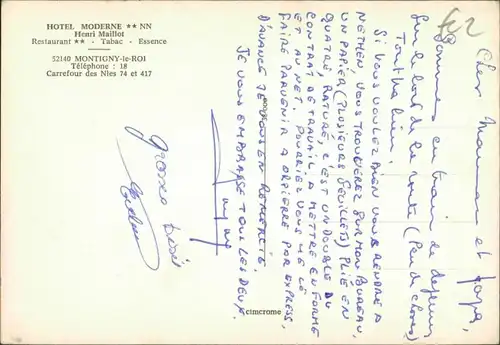 HOTEL MODERNE ** NN
Henri Maillot
Restaurant ** - Tabac - Essence
52140 MONTIGNY-le-ROI
Téléphone : 18
Carrefour des Nles 74 et 417
Cher Maman et papa,
Sommes en train de dejeuner
sur le bord de la route (Peu de choses)
Tout va bien.
SI VOUS VOULEZ BIEN VOUS RENDRE A
NETHEN VOUS TROUVEREZ SUR MON BUREAU,
UN PAPIER (PLUSIEURS FEUILLETS) PLIÉ EN
QUATRE, RATURÉ, C'EST UN DOUBLE DU
CONTRAT DE TRAVAIL A METTRE EN FORME
ET AU NET. POURRIEZ VOUS ME LE
FAIRE PARVENIR A ORPIERRE PAR EXPRESS,
D'AVANCE JE VOUS EN REMERCIE.
JE VOUS EMBRASSE TOUS LES DEUX.
Grosses bises
cimcrome